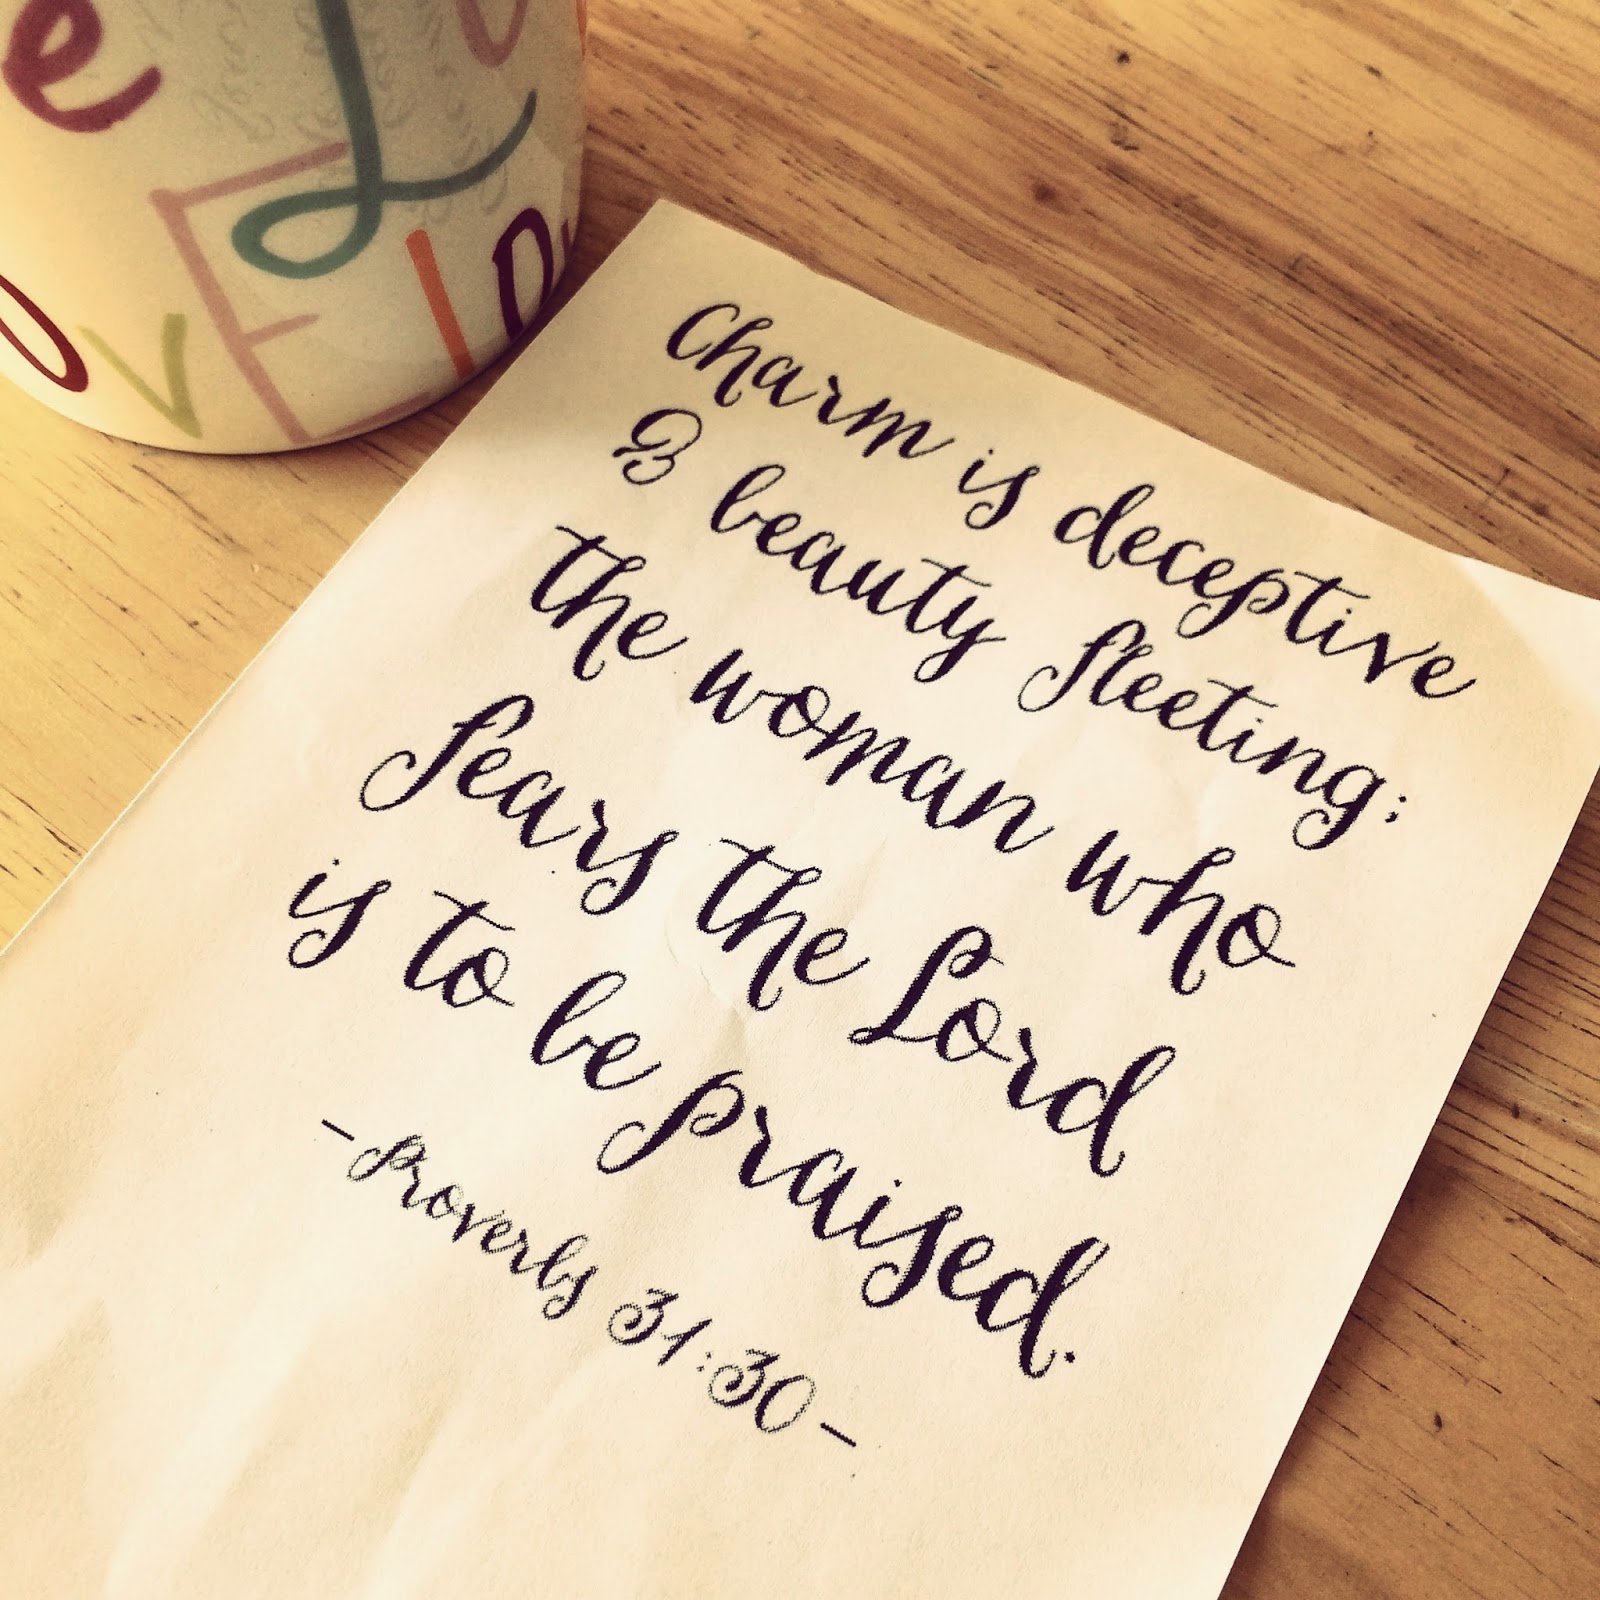 e L
ovE lo
Charm is deceptive
& beauty fleeting;
the woman who
fears the Lord
is to be praised.
-Proverbs 31:30-